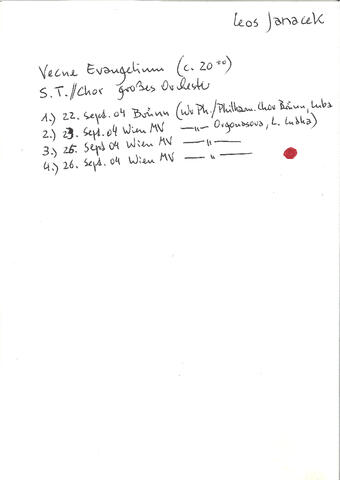 Leos Janacek
Vecne Evangelium (c. 20 00)
S.T.//Chor großes Orchester
1.) 22. Sept. 04 Brünn (Wr Ph./Philham. Chor Brünn, Luba
2.) 23. Sept. 04 Wien MV —"— Orgonasova, L. Ludha)
3.) 25. Sept 04 Wien MV —"—
4.) 26. Sept. 04 Wien MV —"—